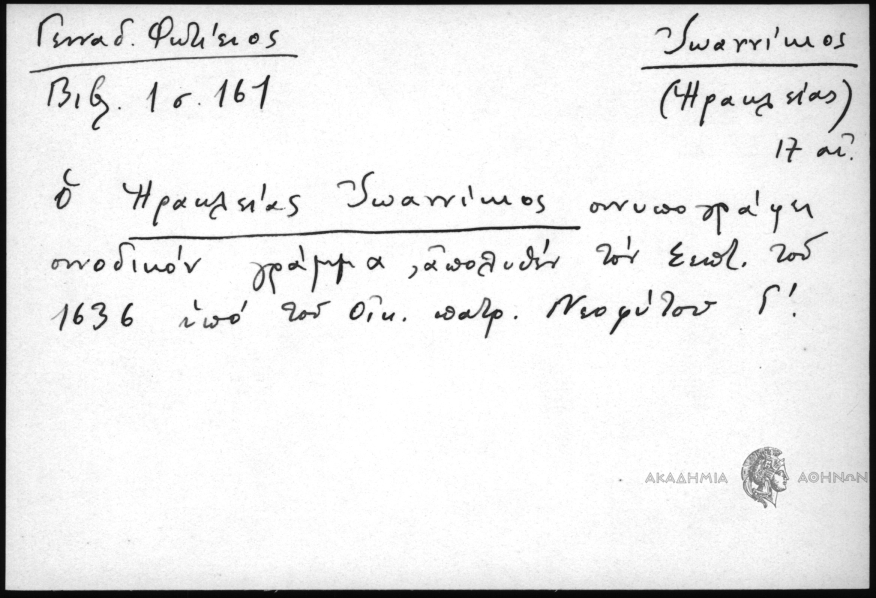 Γενναδ. Φωτίειος
Βιβλ. 1 σ. 161
Ἰωαννίκιος
(Ἡρακλείας)
17 αἰ.
ὁ Ἡρακλείας Ἰωαννίκιος συνυπογράφει
συνοδικόν γράμμα, ἀπολυθέν τόν Σεπτ. τοῦ
1636 ὑπό τοῦ Οἰκ. πατρ. Νεοφύτου Γ΄.
ΑΚΑΔΗΜΙΑ ΑΘΗΝΩΝ